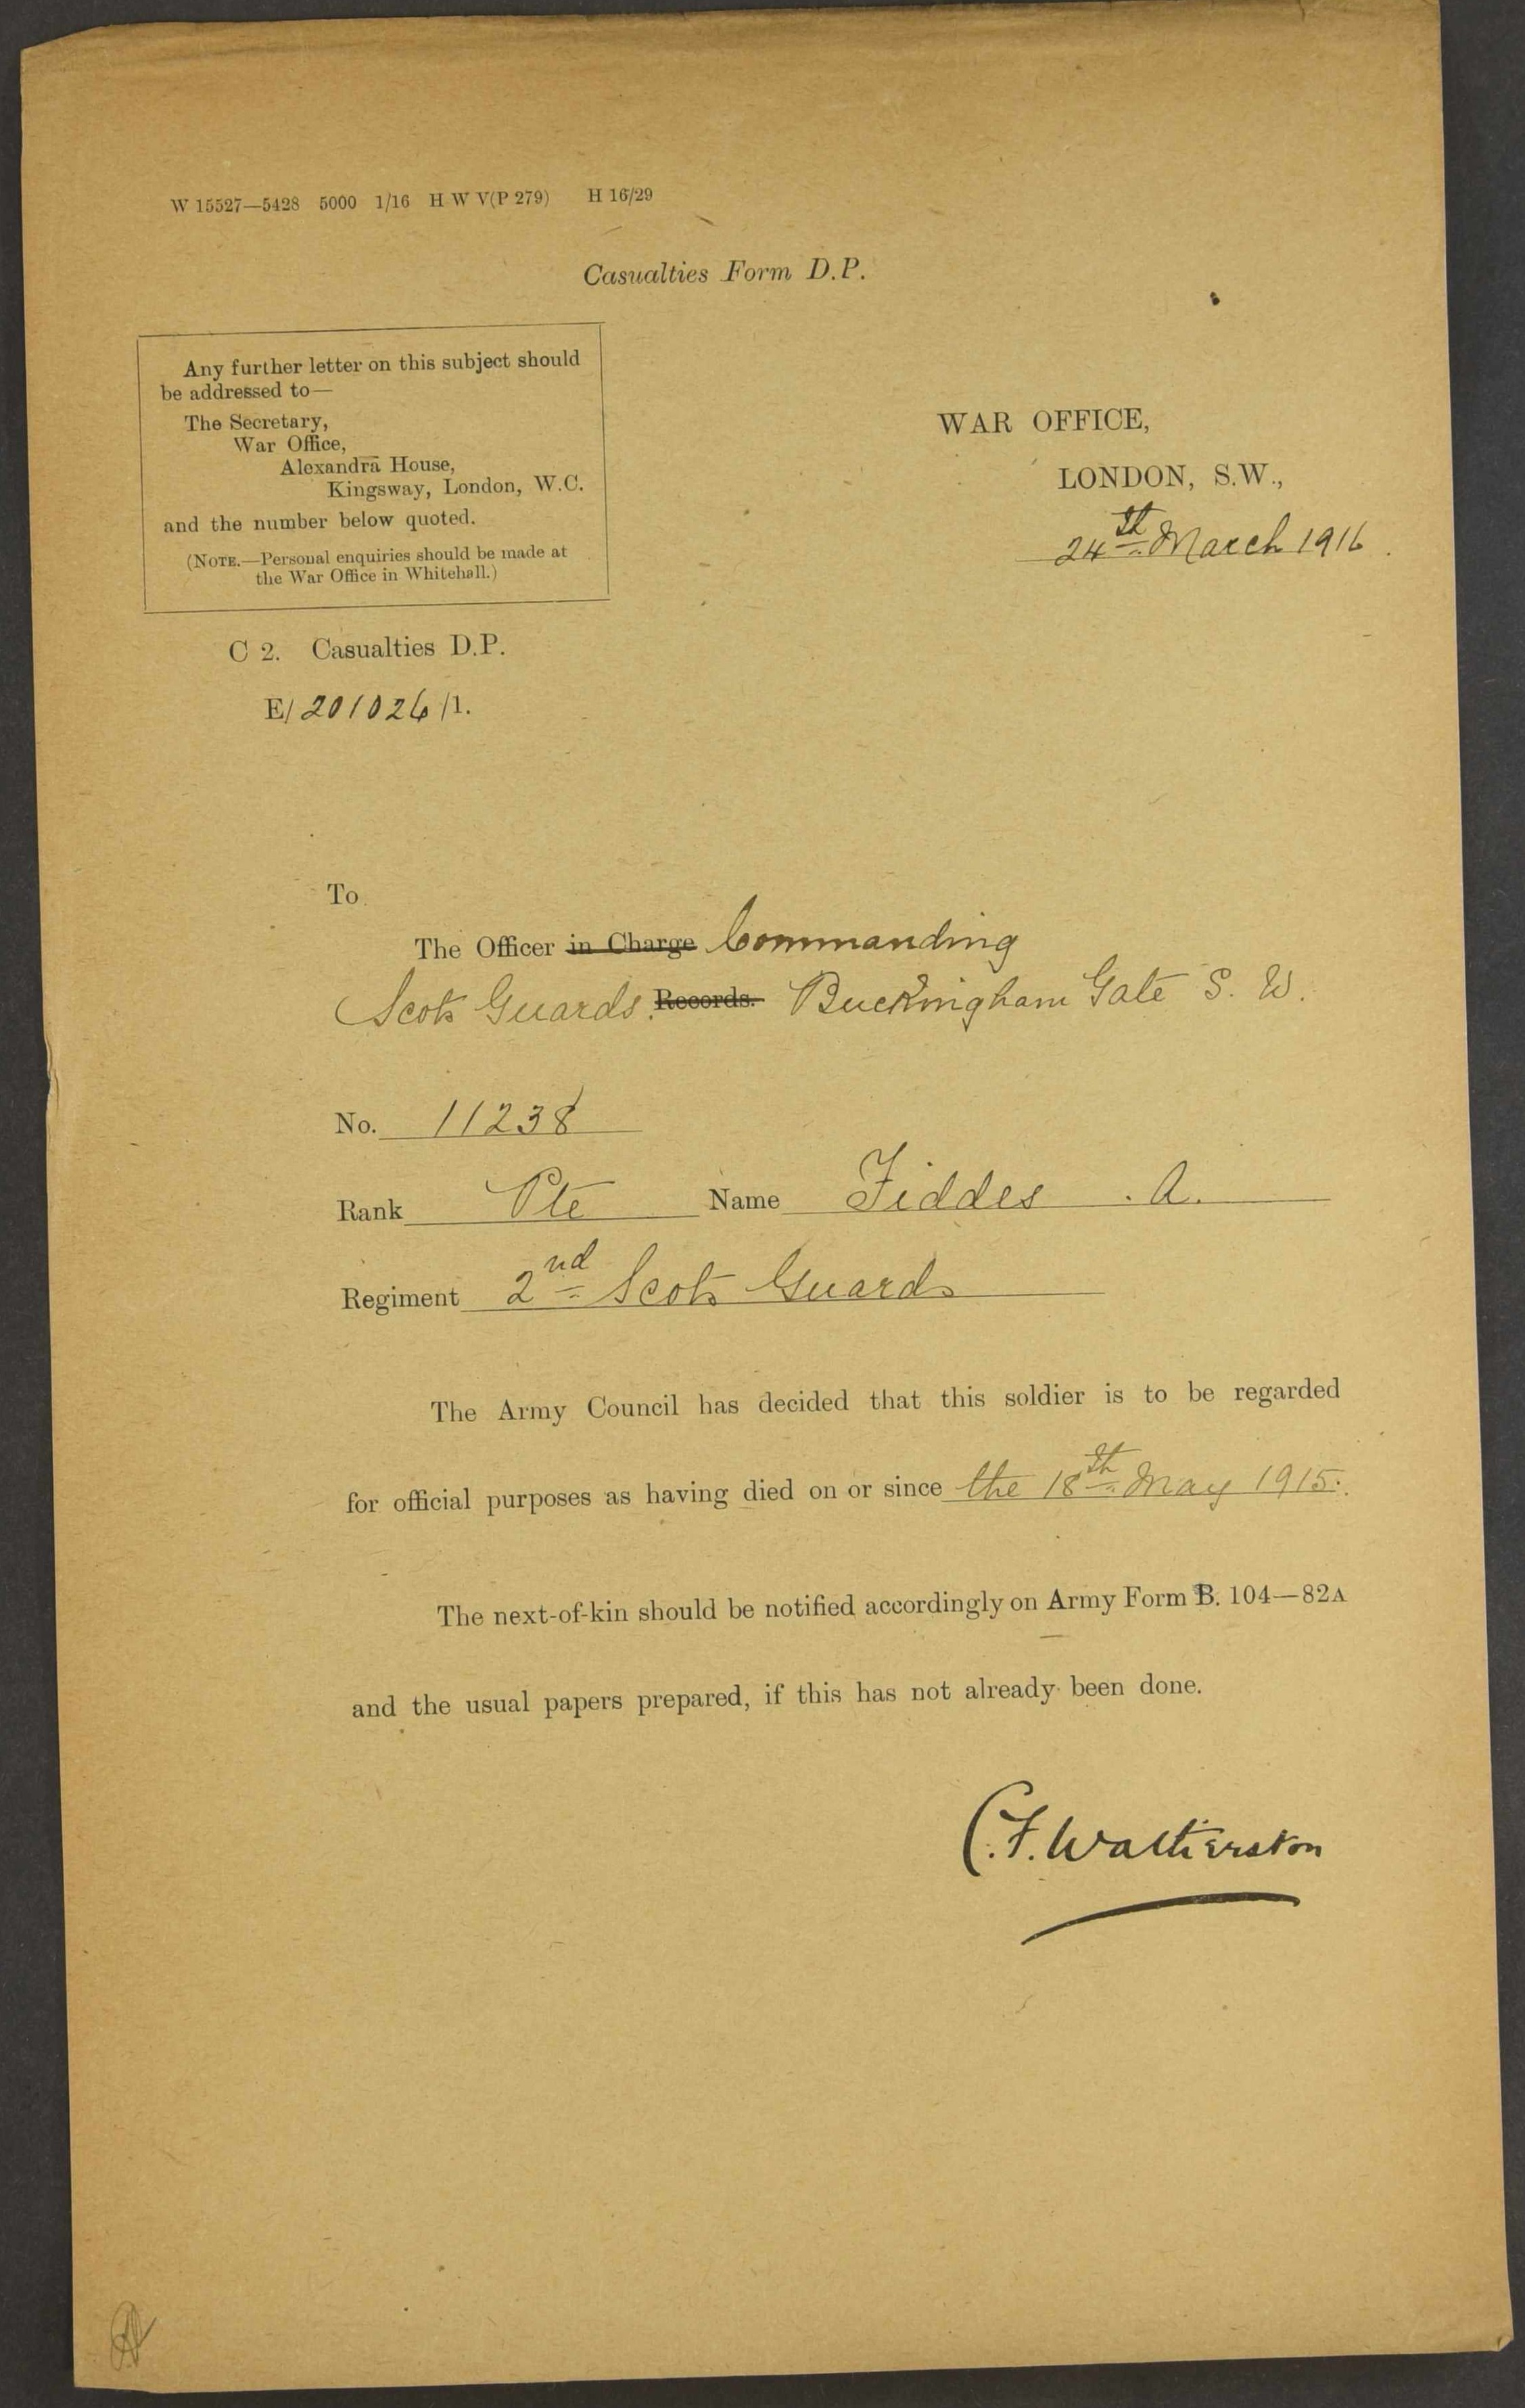 W 15527—5428 5000 1/16 H W V(P 279) H 16/29
Casualties Form D.P.
Any further letter on this subject should
be addressed to—
The Secretary,
War Office,
Alexandra House,
Kingsway, London, W.C.
and the number below quoted.
(NOTE.—Personal enquiries should be made at
the War Office in Whitehall.)
WAR OFFICE,
LONDON, S.W.,
24th March 1916.
C 2. Casualties D.P.
E/201026/1.
To
The Officer in Charge Commanding
Scots Guards. Records. Buckingham Gate S. W.
No. 11238
Rank Pte Name Fiddes . A.
Regiment 2nd Scots Guards
The Army Council has decided that this soldier is to be regarded
for official purposes as having died on or since the 18th May 1915.
The next-of-kin should be notified accordingly on Army Form B. 104—82A
and the usual papers prepared, if this has not already been done.
C.F. Watherston